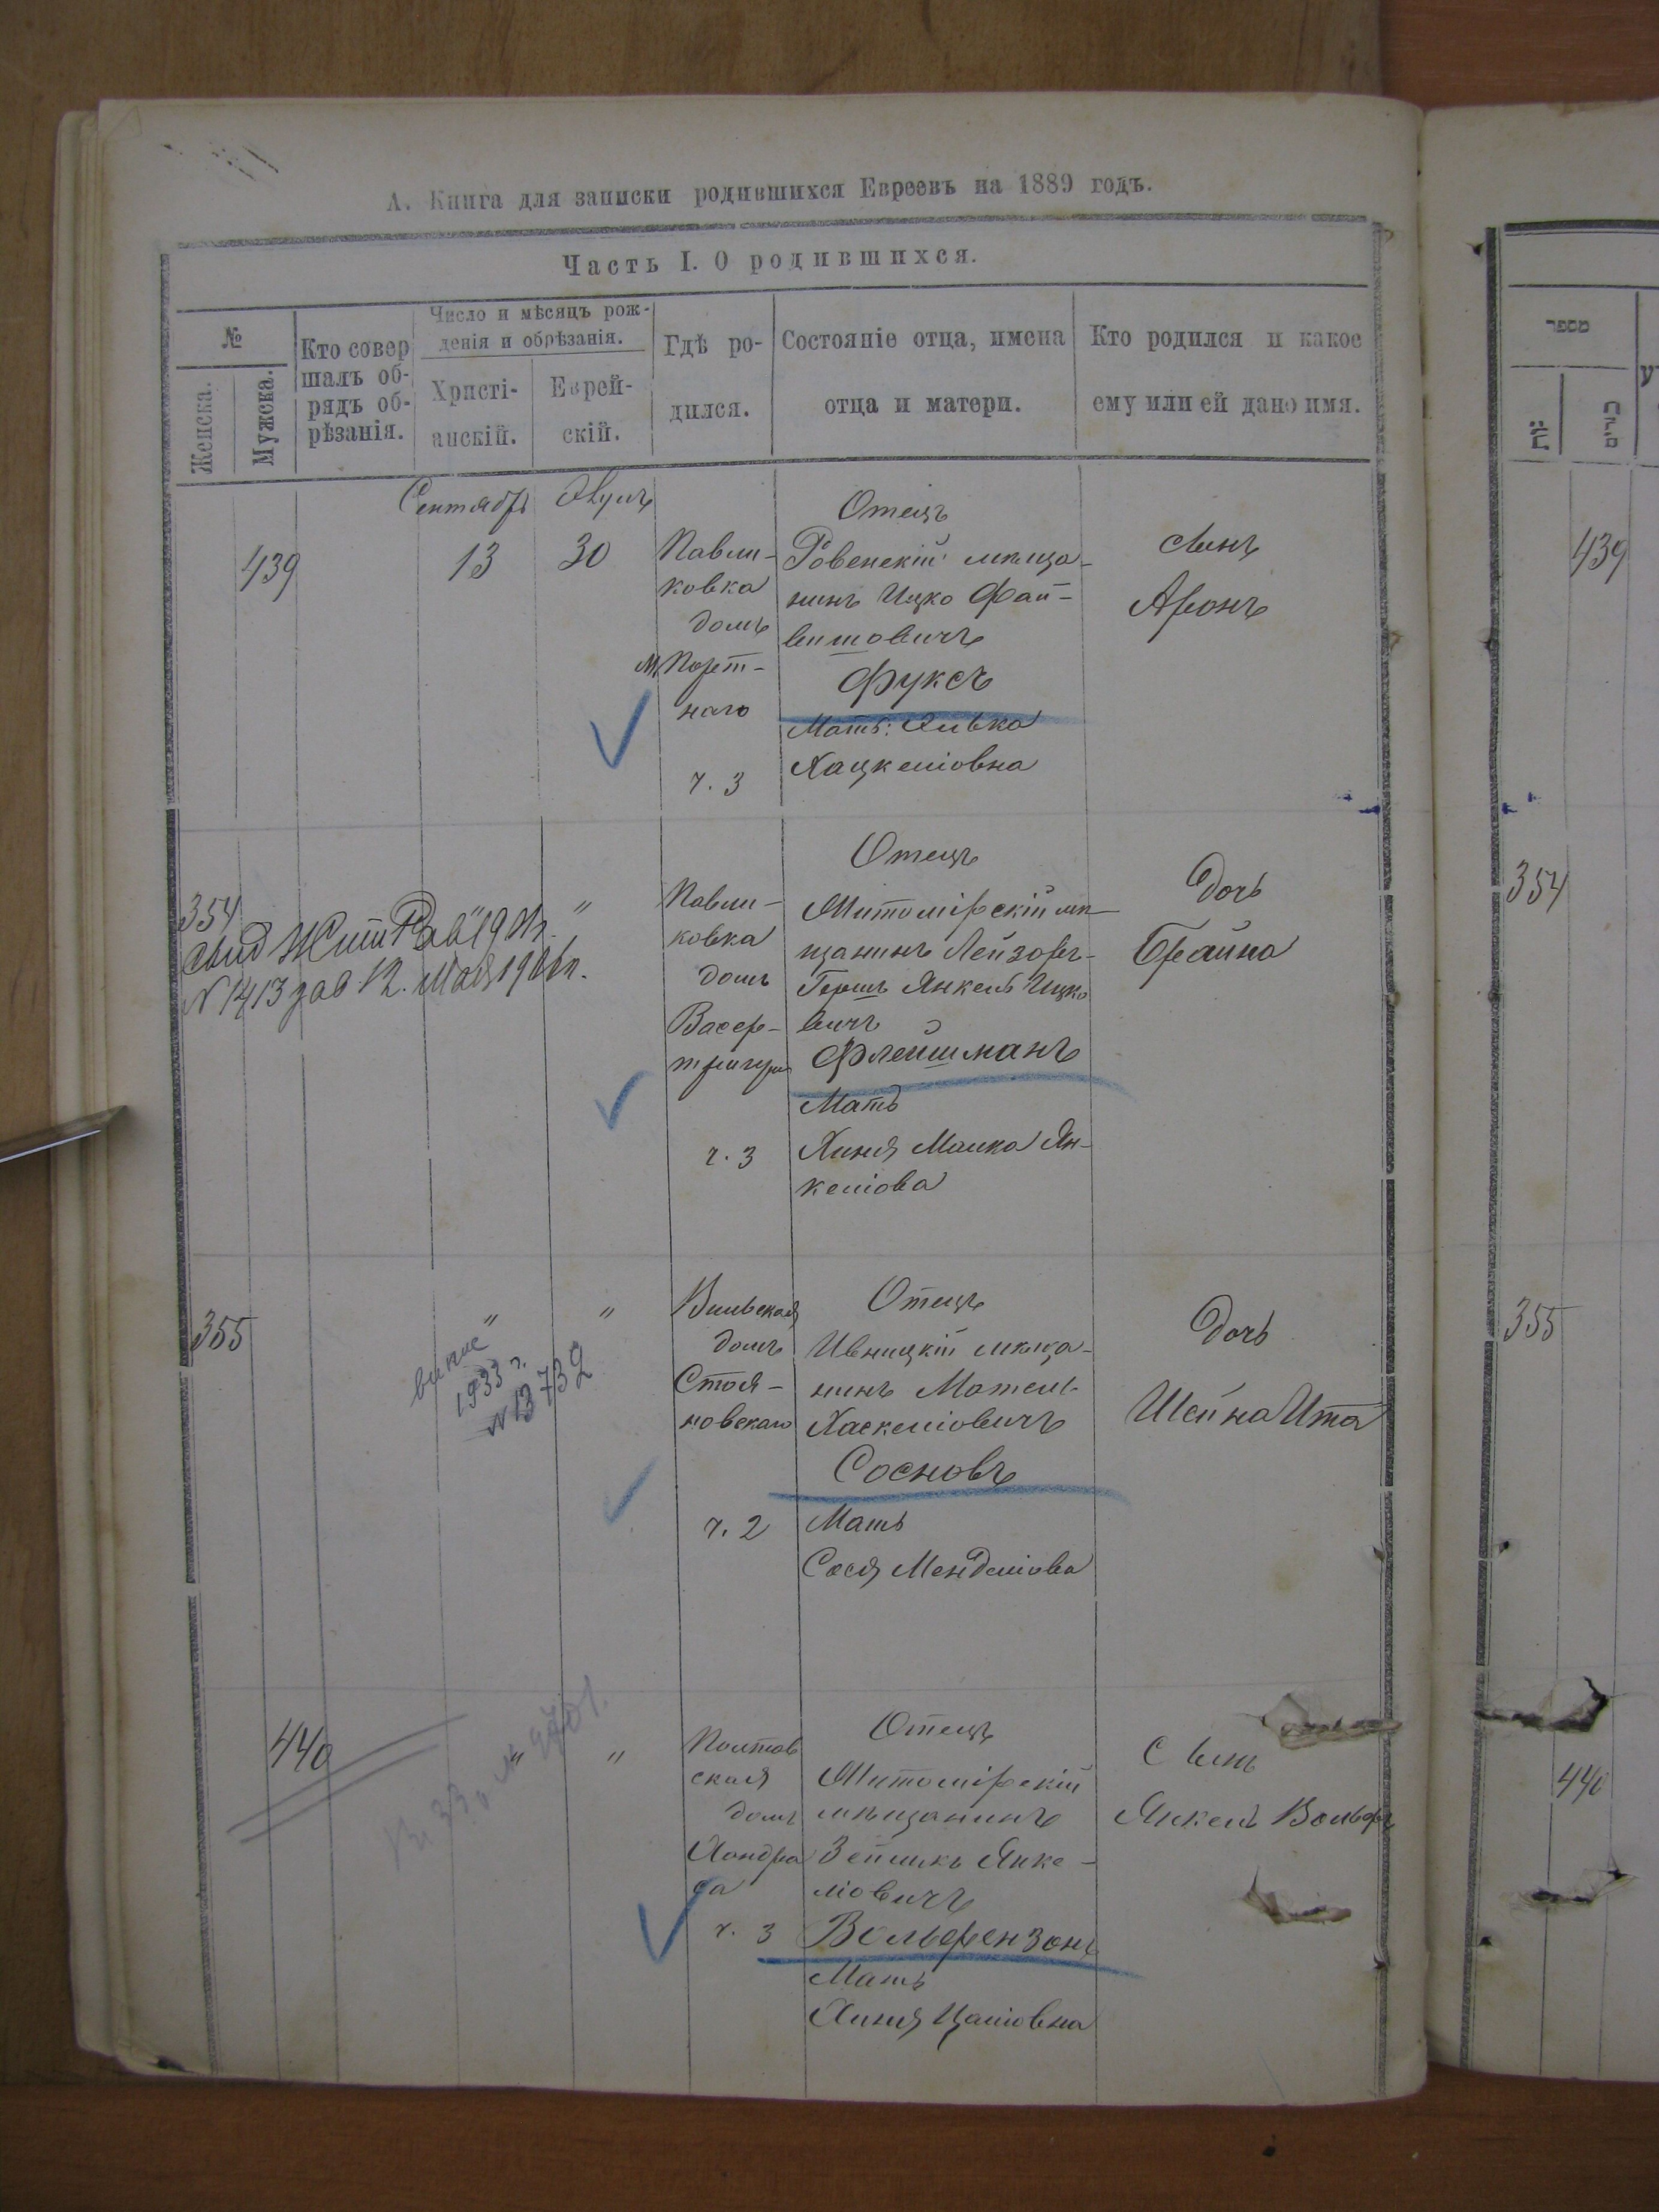 А. Книга для записки родившихся Евреевъ на 1889 годъ.
Часть I. О родившихся.
№
Женска.
Мужска.
Кто совер
шалъ об-
рядъ об-
рѣзанія.
Число и мѣсяцъ рож-
денія и обрѣзанія.
Христі-
анскій.
Еврей-
скій.
Гдѣ ро-
дился.
Состояніе отца, имена
отца и матери.
Кто родился и какое
ему или ей дано имя.
Сентябрь
439
13
30
Павли-
ковка
домъ
М. Порт-
наго
ч. 3
Отецъ
Ровенскій мѣща-
нинъ Ицко Фай-
вишовичъ
Фуксъ
Мать: Ривка
Хацкеліовна
Сынъ
Аронъ
354
"
Павли-
ковка
домъ
Васер-
ч. 3
Отецъ
Житомірскій мѣ-
щанинъ Лейзоръ-
Гершъ Янкель Ицко
вичъ
Флейшманъ
Мать
Хиня Малка Ян-
келіова
Дочь
Брайна
№ 1413 12. Мая
355
"
"
1933 г.
№ 13732
Вильская
домъ
Стоя-
новскаго
ч. 2
Отецъ
Ивницкій мѣща-
нинъ Мотель
Хаскеліовичъ
Сосновъ
Мать
Сося Менделіова
Дочь
Шейна Ита
440
"
"
Полтав
ская
домъ
ч. 3
Отецъ
Житомірскій
мѣщанинъ
Зейликъ Янке-
ліовичъ
Вольфензонъ
Мать
Хиня
Сынъ
Янкель Вольфъ
מספר
439
354
355
440